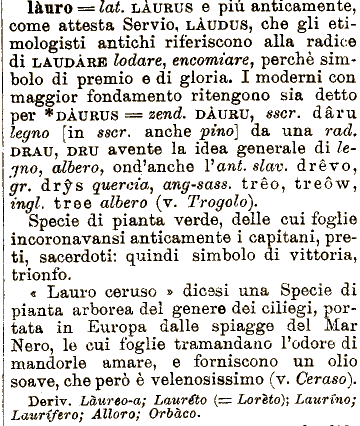 làuro = lat. LÀURUS e più anticamente,
come attesta Servio, LÀUDUS, che gli eti-
mologisti antichi riferiscono alla radice
di LAUDÀRE lodare, encomiare, perchè sim-
bolo di premio e di gloria. I moderni con
maggior fondamento ritengono sia detto
per *DÀURUS = zend. DÀURU, sscr. dâru
legno [in sscr. anche pino] da una rad.
DRAU, DRU avente la idea generale di le-
gno, albero, ond'anche l'ant. slav. drêvo,
gr. drŷs quercia, ang-sass. trêo, treôw,
ingl. tree albero (v. Trogolo).
Specie di pianta verde, delle cui foglie
incoronavansi anticamente i capitani, pre-
ti, sacerdoti: quindi simbolo di vittoria,
trionfo.
« Lauro ceruso » dicesi una Specie di
pianta arborea del genere dei ciliegi, por-
tata in Europa dalle spiagge del Mar
Nero, le cui foglie tramandano l'odore di
mandorle amare, e forniscono un olio
soave, che però è velenosissimo (v. Ceraso).
Deriv. Làureo-a; Lauréto (= Lorèto); Lauríno;
Laurífero; Alloro; Orbàco.